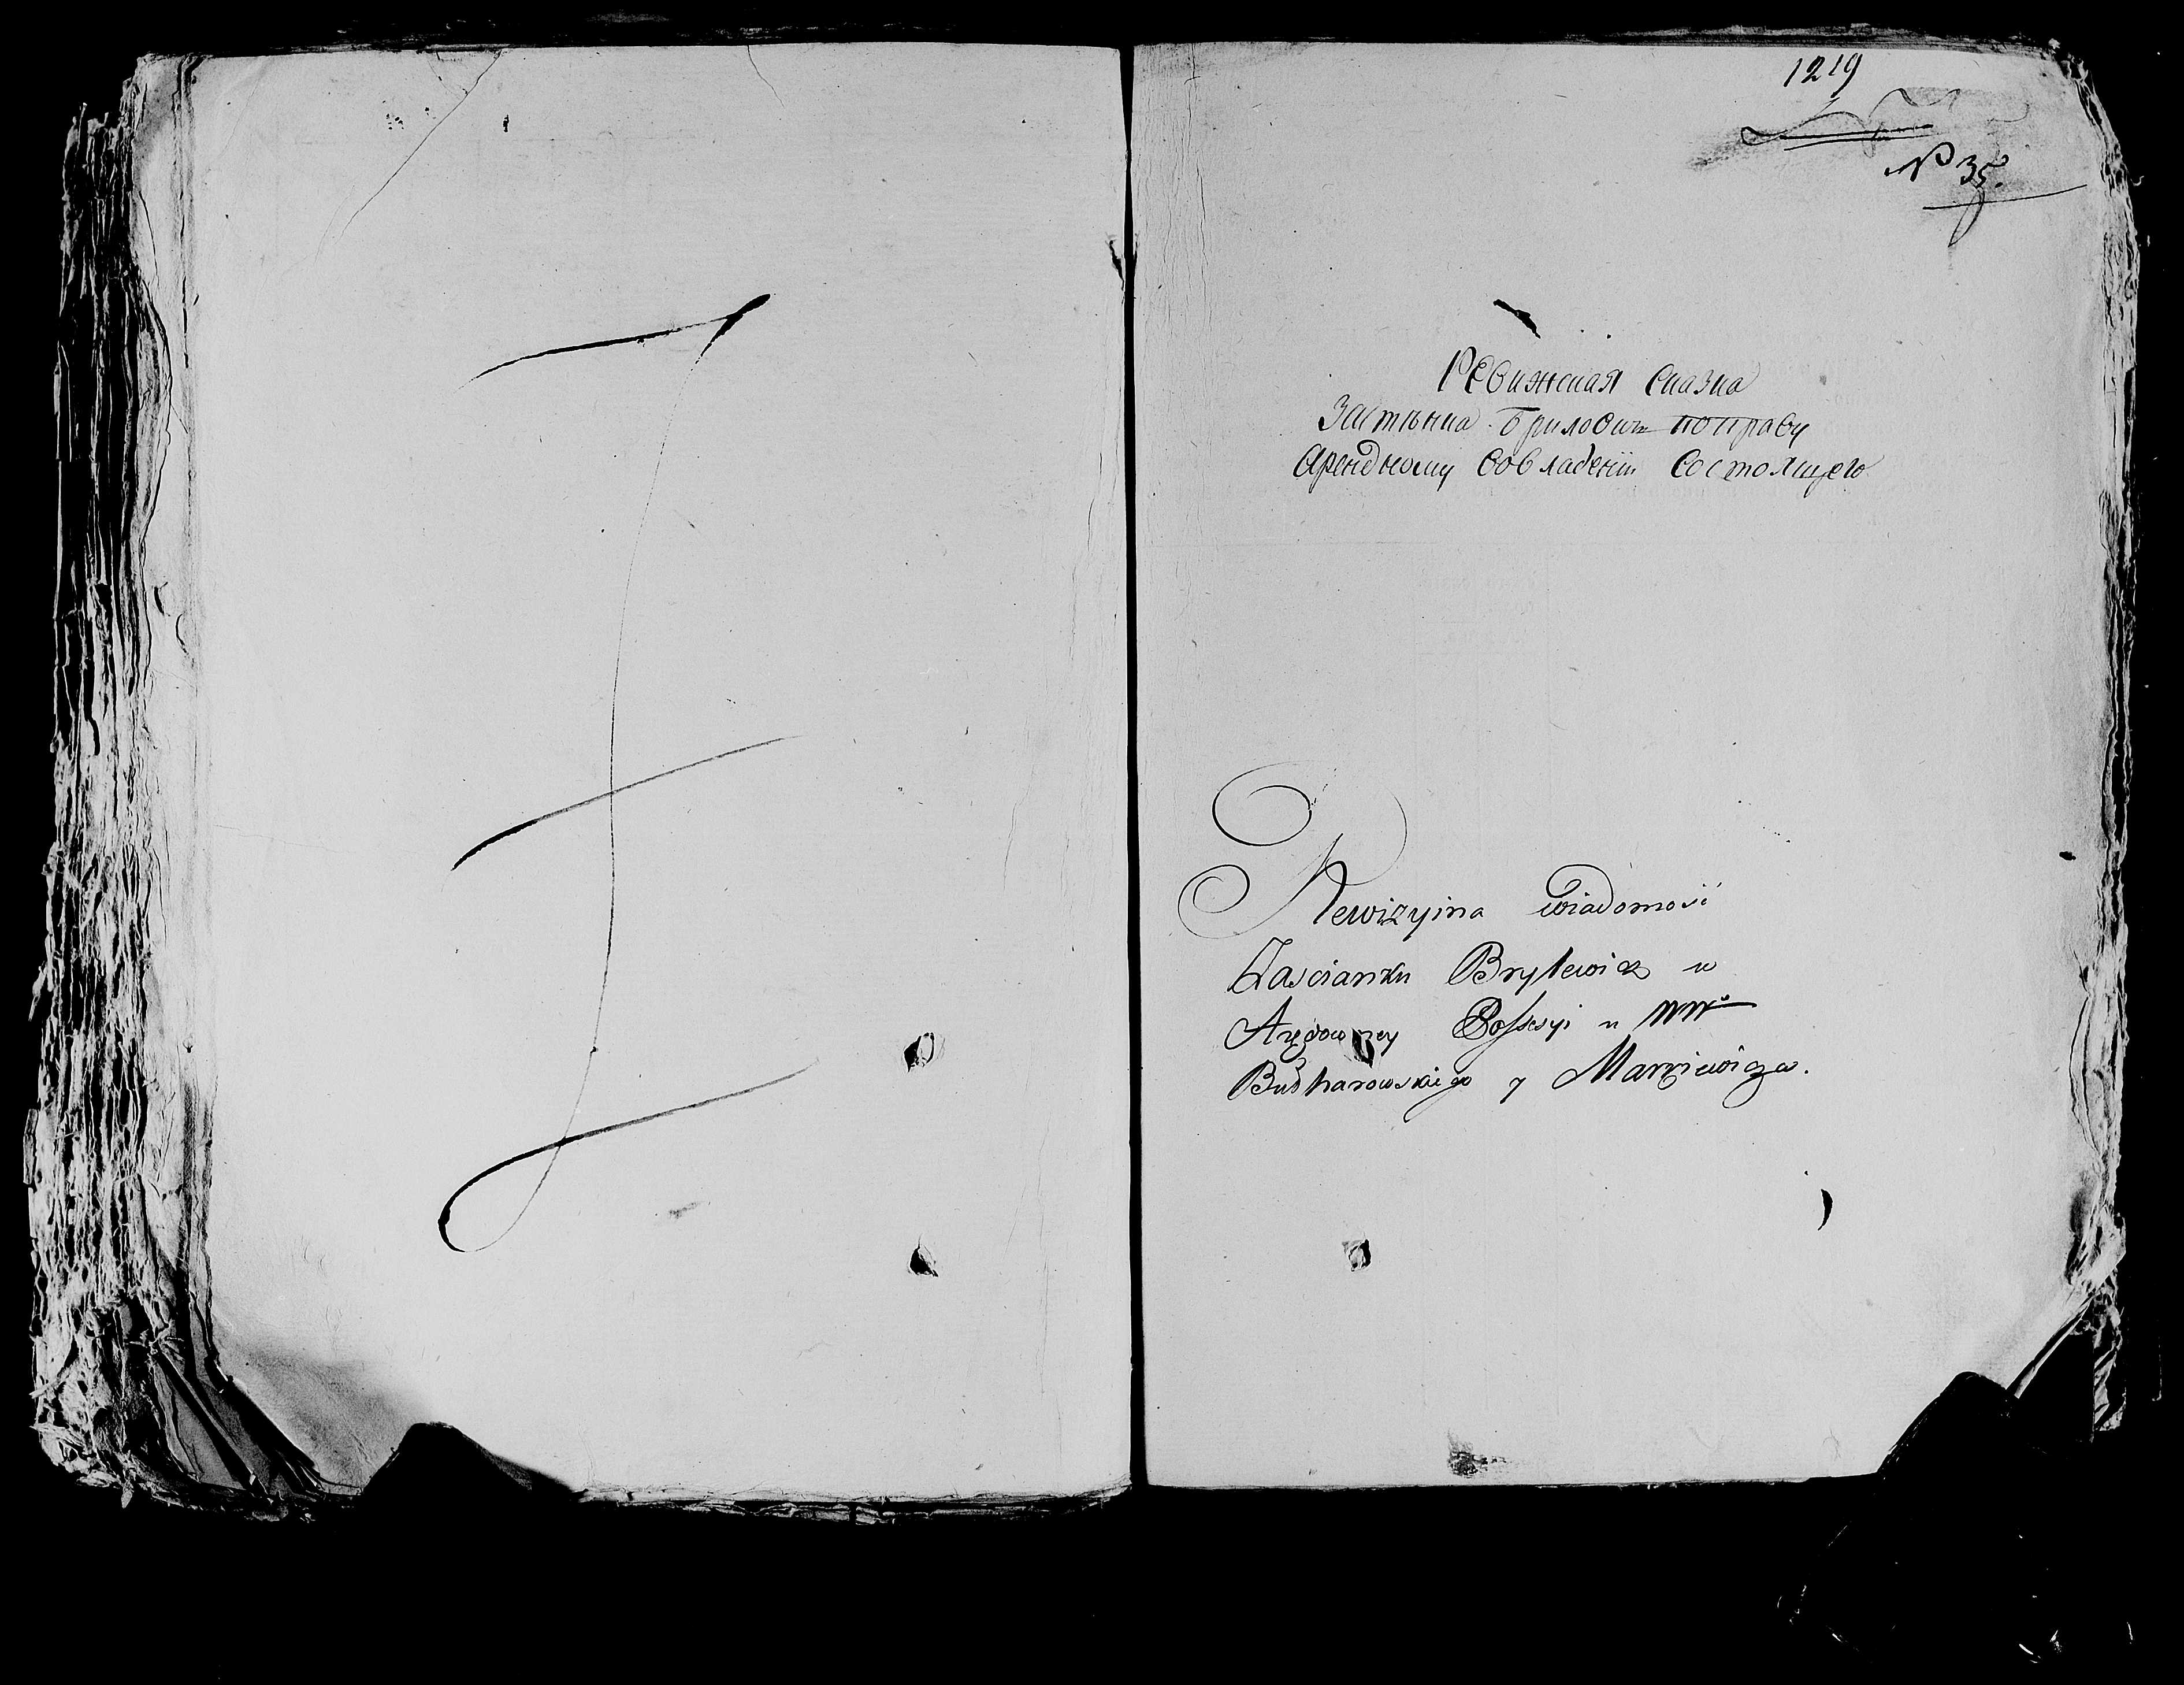 1219
№ 35.
Ревижская Сказка
Застѣнка Бриловичъ поправу
Арендному Вовладении Состоящего
Rewizyina wiadomość
Zascianku Brylewicz w
Arędowney Possesyi u WW°
Bucharowskiego y Marciewicza.